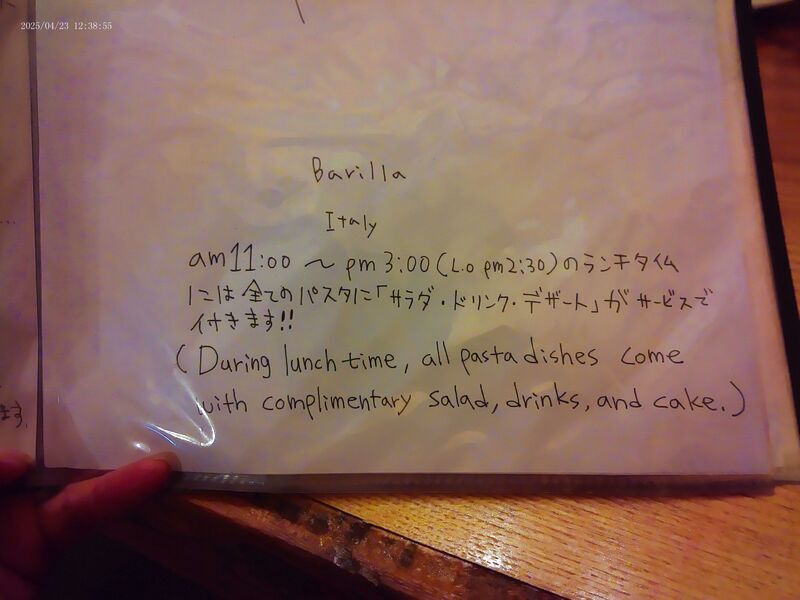 2025/04/23 12:38:55
Barilla
Italy
am11:00 〜 pm3:00(L.o pm2:30)のランチタイム
には全てのパスタに「サラダ・ドリンク・デザート」がサービスで
付きます!!
(During lunch time, all pasta dishes come
with complimentary salad, drinks, and cake.)
ます。